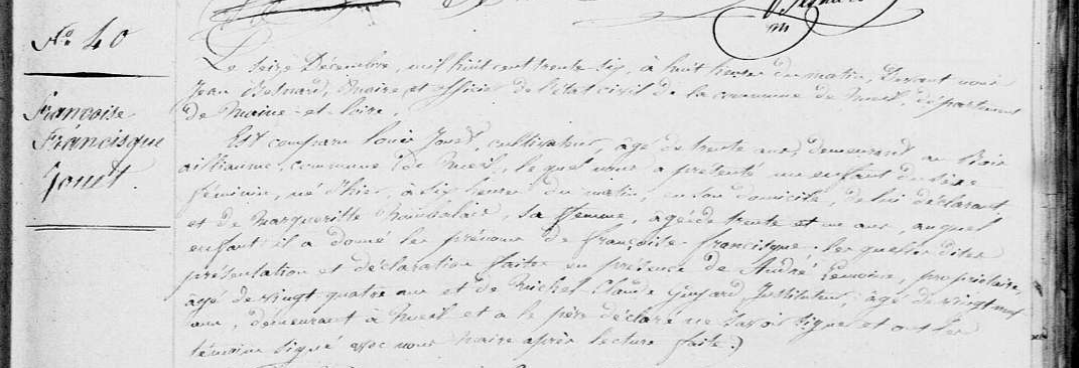 N.º 40
Françoise
Francisque
Jouet.
Le seize Décembre, mil huit cent trente six, à huit heures du matin, Devant nous
Jean Maire et officier de l'état civil de la commune de Nueil, département
de Maine-et-Loire,
Est comparu Louis Jouet, cultivateur, âgé de trente ans, demeurant au Bois
commune de Nueil, lequel nous a présenté un enfant du sexe
féminin, né d'hier, à six heures du matin, en son domicile, de lui déclarant
et de Margueritte sa femme, agée de trente et un ans, auquel
enfant il a donné les prénoms de françoise-francisque. les quelles dites
présentation et déclaration faites en présence de André Lemoine, propriétaire,
âgé de vingt quatre ans et de Michel Claude Instituteur, âgé de vingt neuf
ans, demeurant à Nueil et a le père déclaré ne savoir signer et ont les
témoins signé avec nous Maire après lecture faite.)